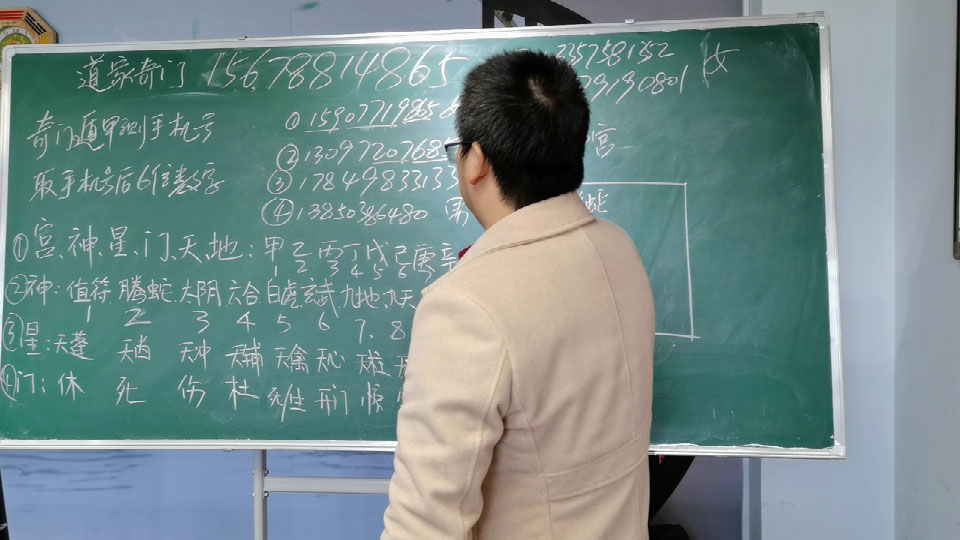 道家奇门 15678814865
3357581352
79190801 女
奇门遁甲测手机号
取手机号后6位数字
① 159077198658
② 130977207685
③ 17849833133
④ 13850386480 男
宫
蛇
①宫、神、星、门、天、地:甲乙丙丁戊己庚辛
1 2 3 4 5 6
②神:值符 腾蛇 太阴 六合 白虎 玄武 九地 九天
1 2 3 4 5 6 7. 8
③星:天蓬 天芮 天冲 天辅 天禽 天心 天柱
④门:休 死 伤 杜 死生 开门 惊